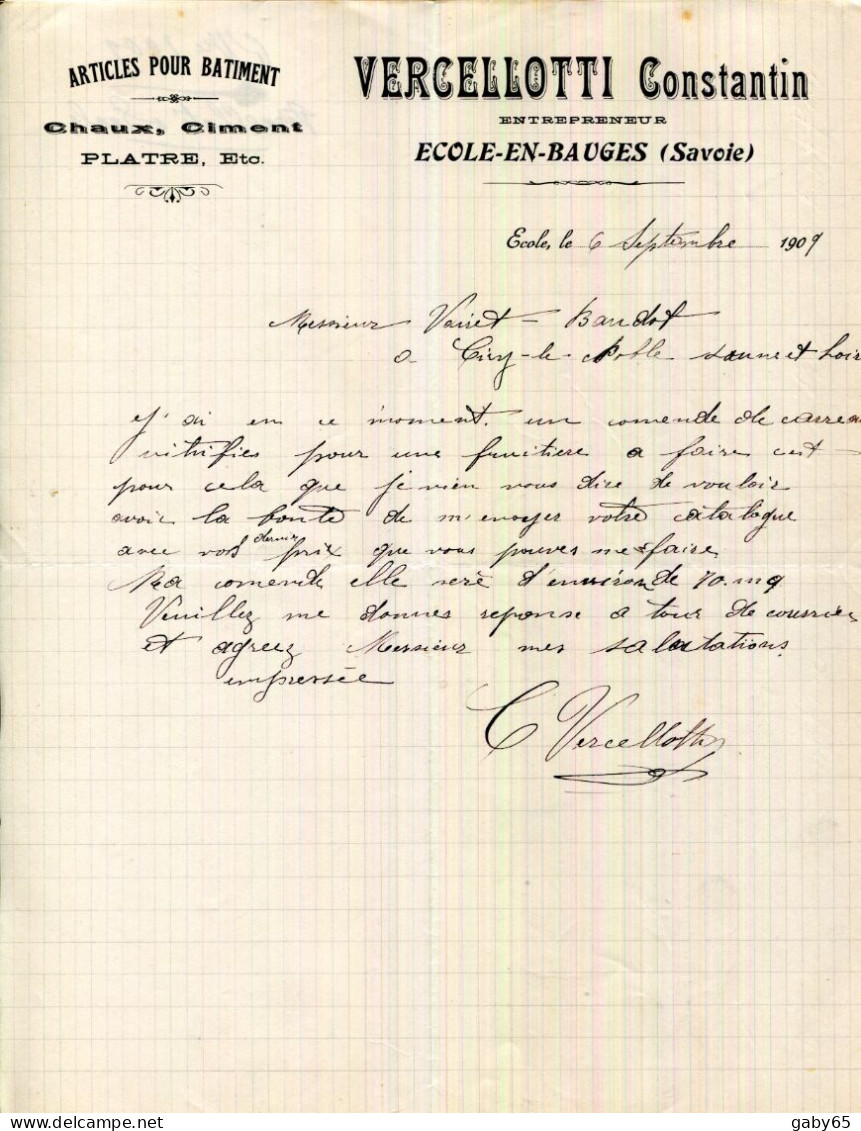 ARTICLES POUR BATIMENT
Chaux, Ciment
PLATRE, Etc.
VERCELLOTTI Constantin
ENTREPRENEUR
ECOLE-EN-BAUGES (Savoie)
Ecole, le 6 Septembre 1909
Messieur Vairet = Baudot
a Ciry-le-Noble saune et Loir
J'ai en ce moment un comende de carreau
vitrifies pour une fruitiere a faire cest
pour cela que je vien vous dire de vouloir
avoir la bonté de m'envoyer votre catalogue
avec vos dernier prix que vous pouves me faire
Ma comende elle serè d'environ de 70 mq
Veuillez me donner reponse a tour de courrier
et agreez Messieur mes salutations
empressée
C Vercellotti
gaby65